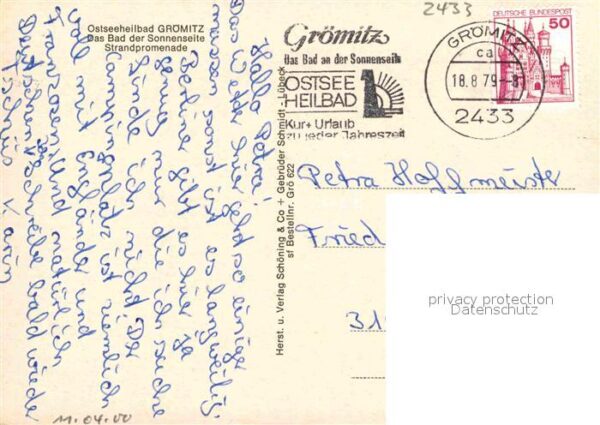 Ostseeheilbad GRÖMITZ
Das Bad der Sonnenseite
Strandpromenade
Hallo Petra!
Das Wetter hier geht so einiger
massen sonst ist es langweilig.
Berliner gibt es hier ja
genug nur die ich suche
finde ich nicht. Der
Campingplatz ist ziemlich
voll mit Engländer und
Franzosen und natürlich
Deutschen. Schreibe bald wieder
Tschüß Karin
11.04.00
Herst. u. Verlag Schöning & Co + Gebrüder Schmidt - Lübeck
sf Bestellnr. Grö 622
2433
Grömitz
Das Bad an der Sonnenseite
OSTSEE
HEILBAD
Kur + Urlaub
zu jeder Jahreszeit
GRÖMITZ
ca
18.8.79-8
2433
DEUTSCHE BUNDESPOST
50
Petra Hoffmeister
Fried
31
privacy protection
Datenschutz